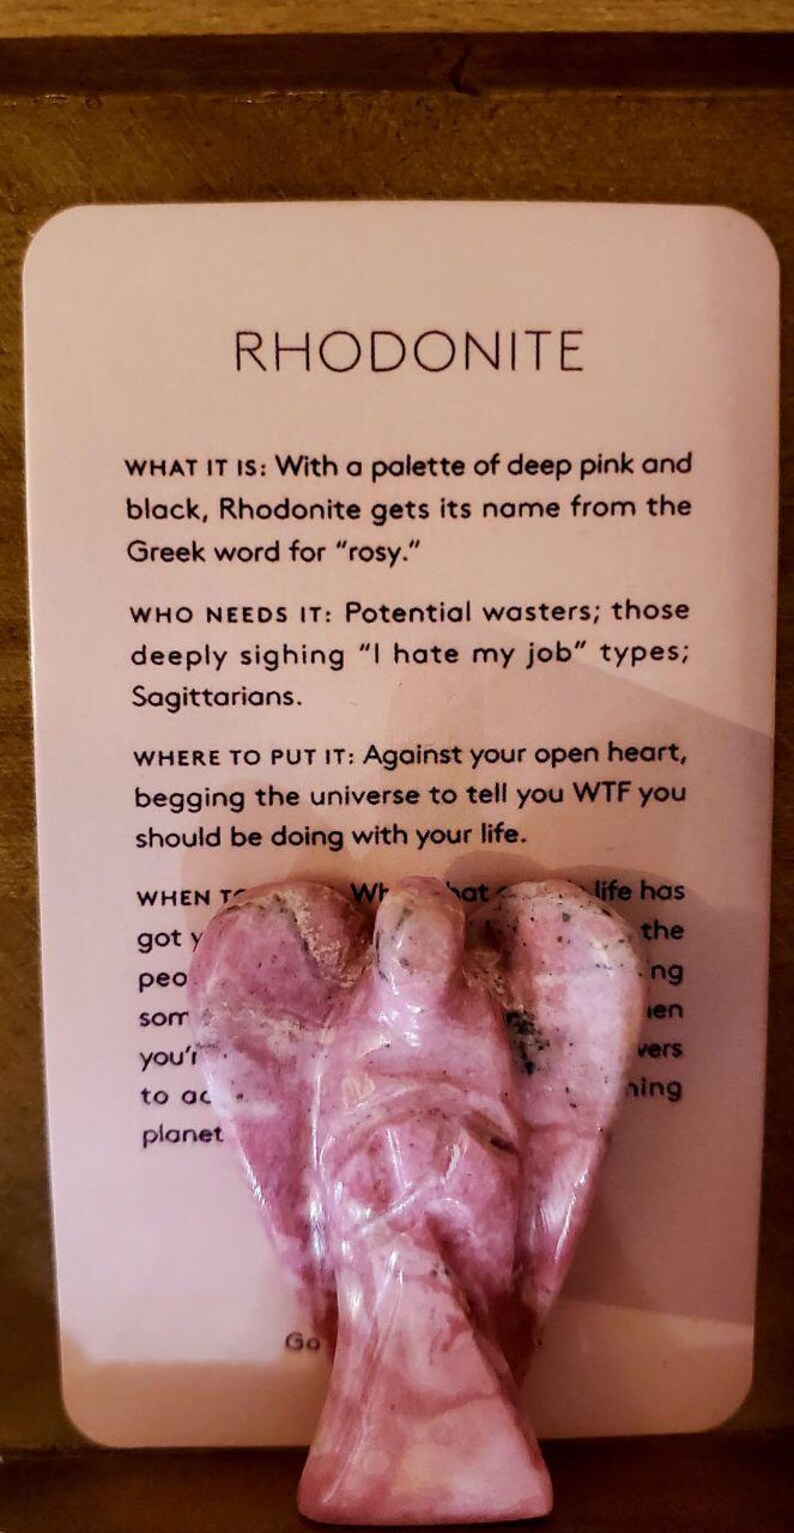 RHODONITE
WHAT IT IS: With a palette of deep pink and
black, Rhodonite gets its name from the
Greek word for “rosy.”
WHO NEEDS IT: Potential wasters; those
deeply sighing “I hate my job” types;
Sagittarians.
WHERE TO PUT IT: Against your open heart,
begging the universe to tell you WTF you
should be doing with your life.
WHEN life has
got the
to
planet